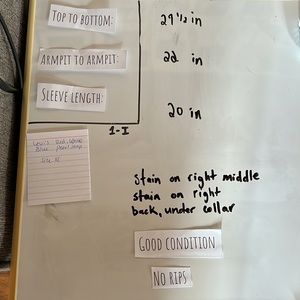 TOP TO BOTTOM: 29 1/2 in
ARMPIT TO ARMPIT: 22 in
SLEEVE LENGTH: 20 in
1-I
Stain on right middle
stain on right
back, under collar
GOOD CONDITION
NO RIPS